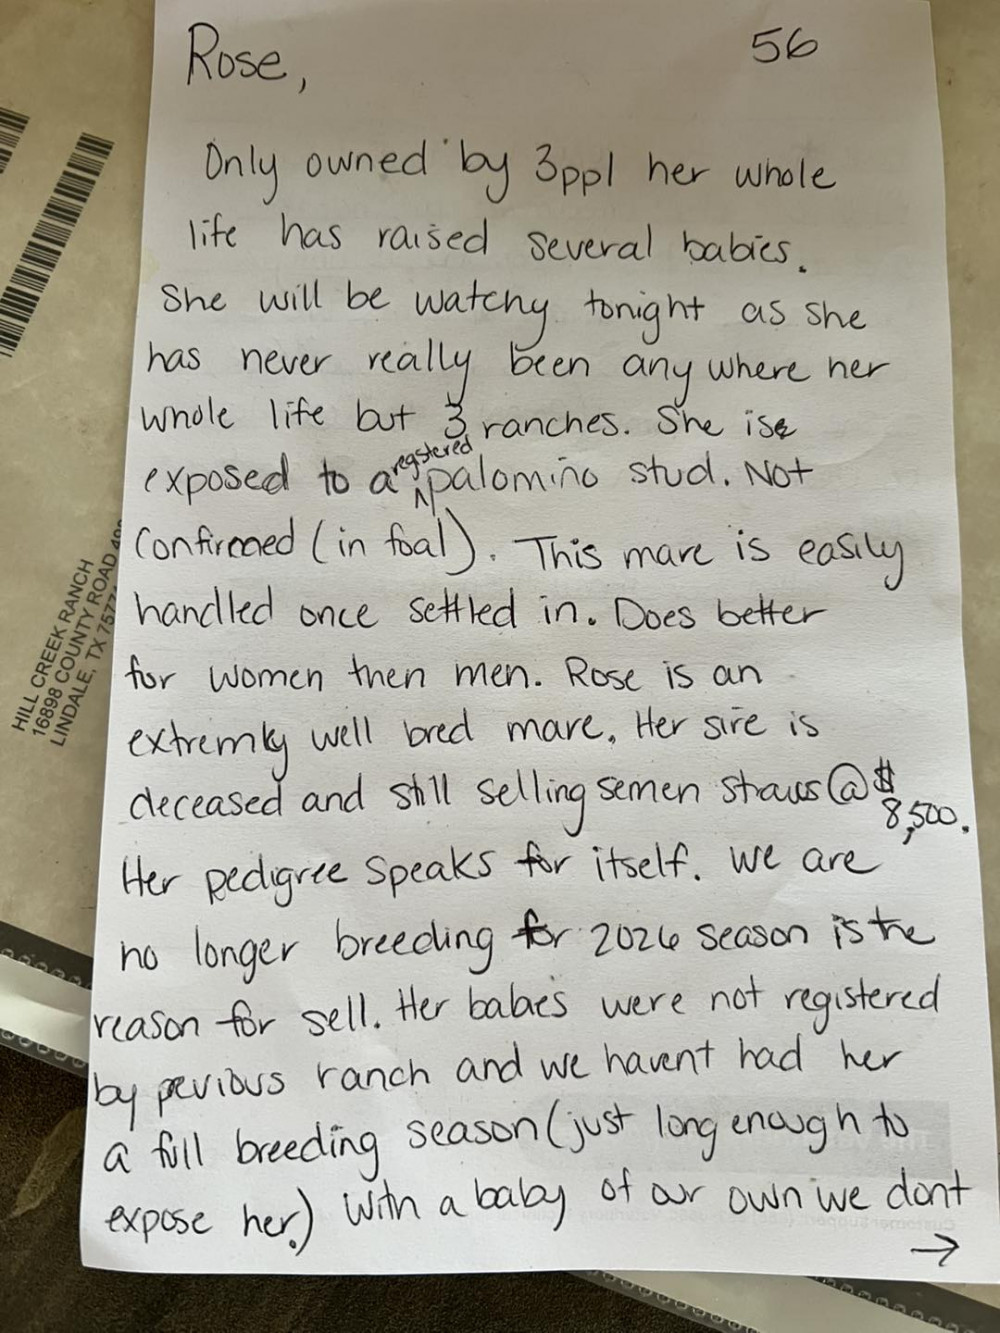 Rose,
56
Only owned by 3ppl her whole
life has raised several babies.
She will be watchy tonight as she
has never really been any where her
whole life but 3 ranches. She is
exposed to a regstered palomino stud. Not
Confirmed (in foal). This mare is easily
handled once settled in. Does better
for women then men. Rose is an
extremly well bred mare. Her sire is
deceased and still selling semen straws @ $
8,500.
Her pedigree speaks for itself. We are
no longer breeding for 2026 season is the
reason for sell. Her babies were not registered
by pevious ranch and we havent had her
a full breeding season (just long enough to
expose her.) With a baby of our own we dont
→
HILL CREEK RANCH
16898 COUNTY ROAD
LINDALE, TX